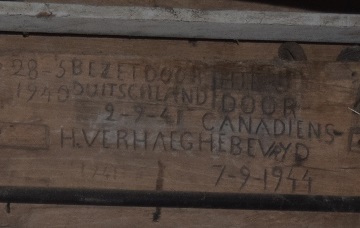 28-5 BEZET DOOR
1940 DUITSCHLAND DOOR
2-9-41 CANADIENS-
H.VERHAEGHE BEVRYD
1941 7-9-1944